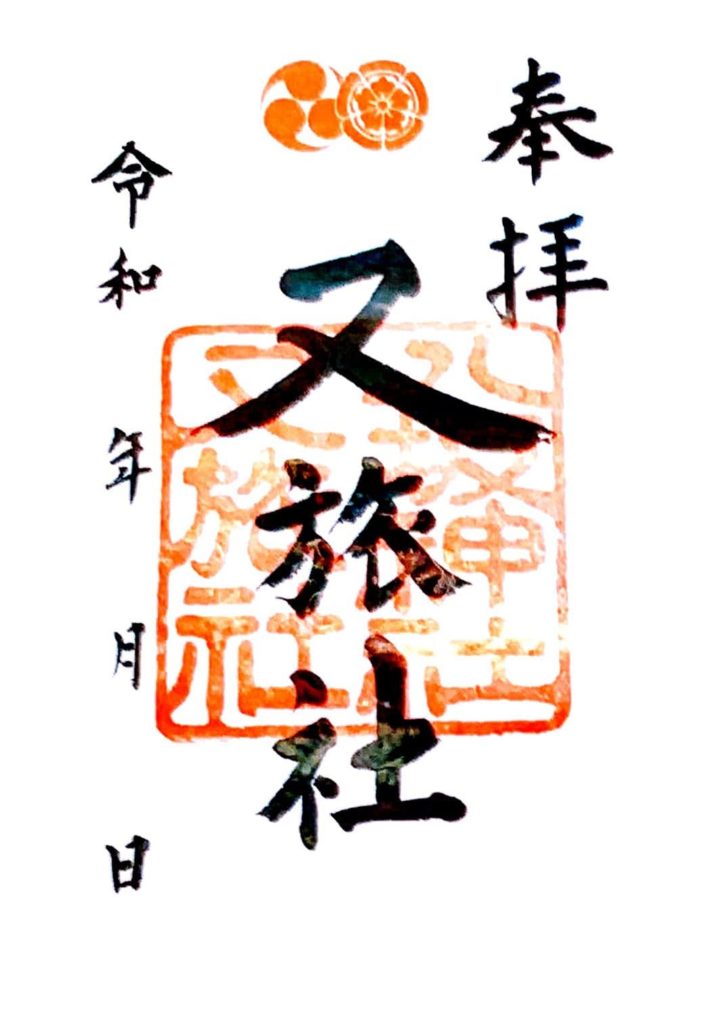 奉拝
又旅社
八坂神社
又旅社
令和 年 月 日